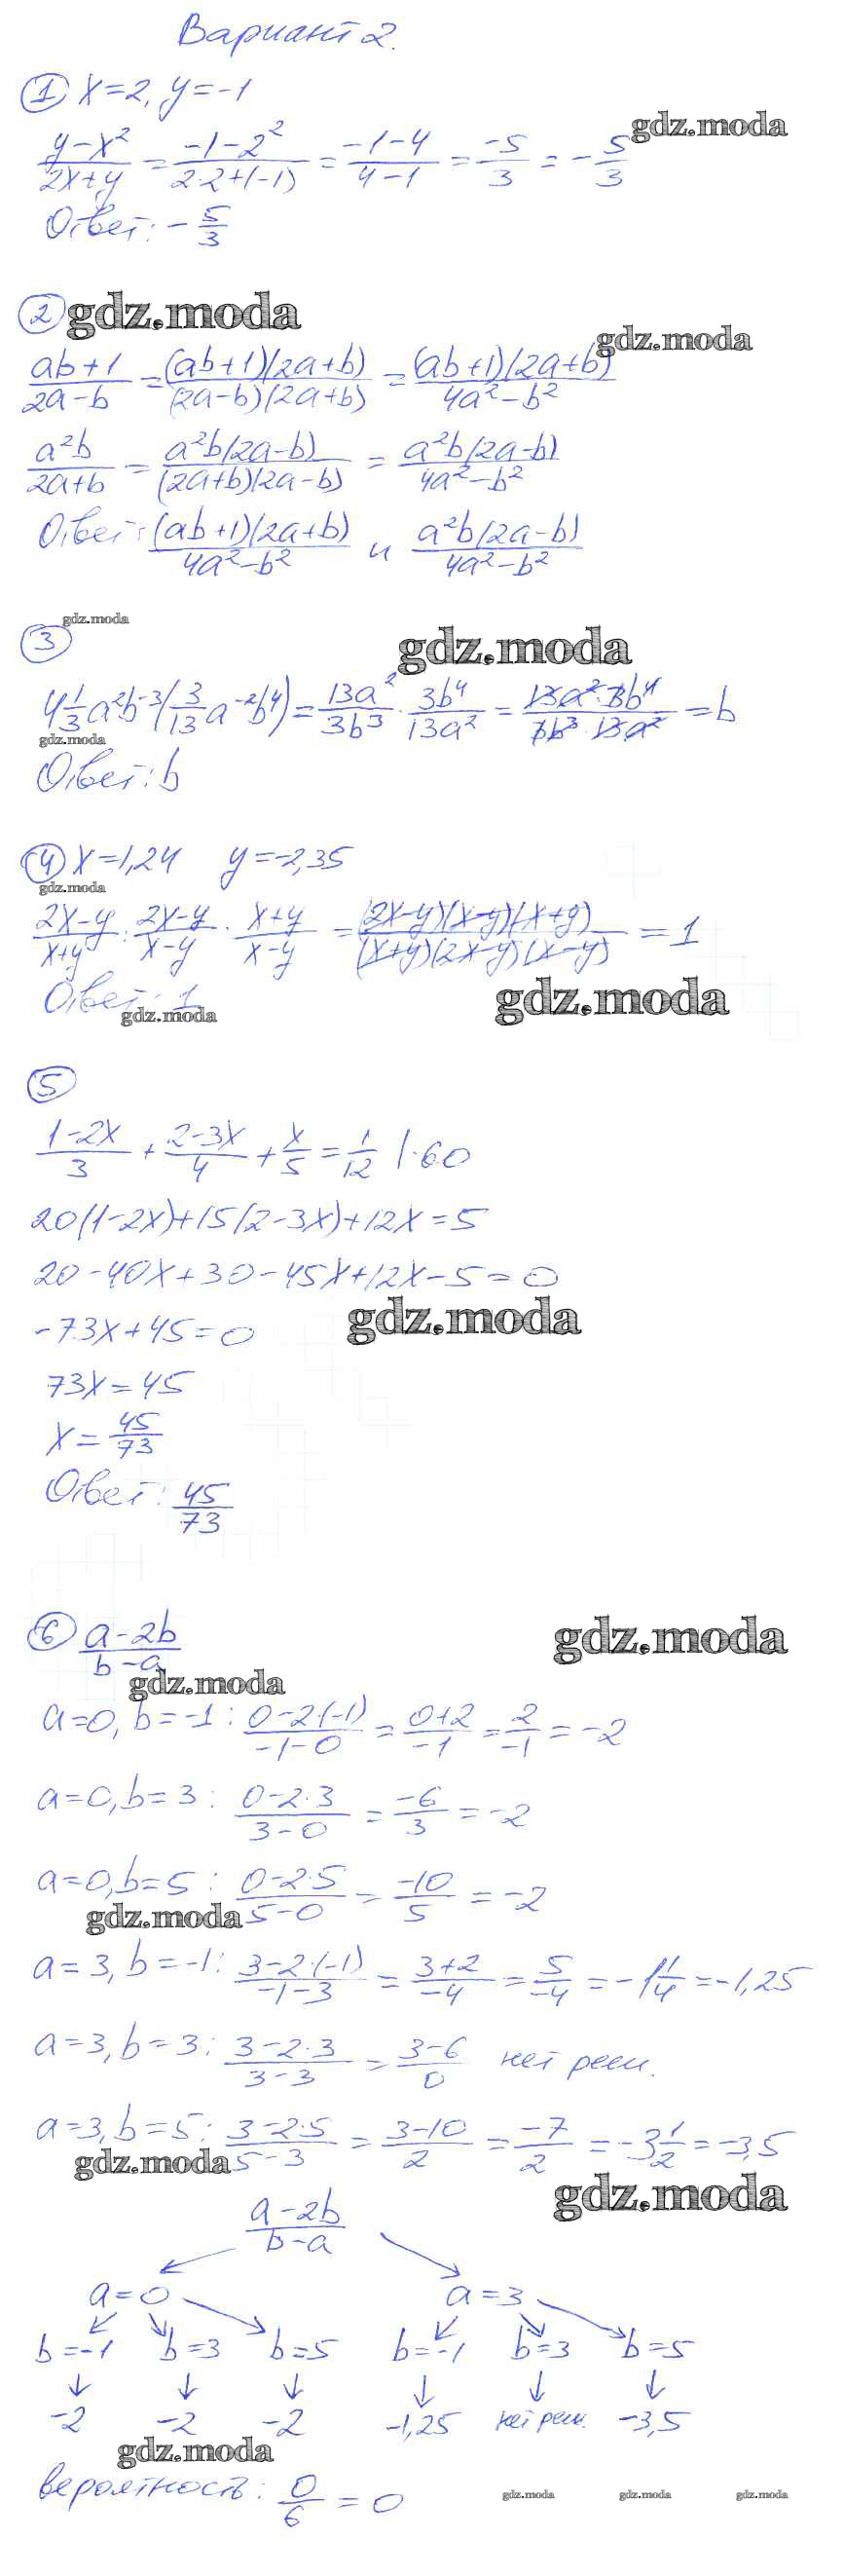 Вариант 2.
① x=2, y=-1
gdz.moda
(y-x²)/(2x+y) = (-1-2²)/(2·2+(-1)) = (-1-4)/(4-1) = -5/3 = -5/3
Ответ: -5/3
② gdz.moda
gdz.moda
(ab+1)/(2a-b) = (ab+1)(2a+b)/(2a-b)(2a+b) = (ab+1)(2a+b)/(4a²-b²)
a²b/(2a+b) = a²b(2a-b)/(2a+b)(2a-b) = a²b(2a-b)/(4a²-b²)
Ответ: (ab+1)(2a+b)/(4a²-b²) и a²b(2a-b)/(4a²-b²)
gdz.moda
③ gdz.moda
4 1/3 a²b⁻³(3/13 a⁻²b⁴) = 13a²/3b³ · 3b⁴/13a² = 13a²·3b⁴/3b³·13a² = b
gdz.moda
Ответ: b
④ x=1,24 y=-2,35
gdz.moda
(2x-y)/(x+y) : (2x-y)/(x-y) · (x+y)/(x-y) = (2x-y)(x-y)(x+y)/(x+y)(2x-y)(x-y) = 1
Ответ: 1
gdz.moda gdz.moda
⑤
(1-2x)/3 + (2-3x)/4 + x/5 = 1/12 |·60
20(1-2x)+15(2-3x)+12x=5
20-40x+30-45x+12x-5=0
-73x+45=0 gdz.moda
73x=45
x=45/73
Ответ: 45/73
⑥ (a-2b)/(b-a) gdz.moda
gdz.moda
a=0, b=-1: (0-2·(-1))/(-1-0) = (0+2)/-1 = 2/-1 = -2
a=0, b=3: (0-2·3)/(3-0) = -6/3 = -2
a=0, b=5: (0-2·5)/(5-0) = -10/5 = -2
gdz.moda
a=3, b=-1: (3-2·(-1))/(-1-3) = (3+2)/-4 = 5/-4 = -1 1/4 = -1,25
a=3, b=3: (3-2·3)/(3-3) = (3-6)/0 нет реш.
a=3, b=5: (3-2·5)/(5-3) = (3-10)/2 = -7/2 = -3 1/2 = -3,5
gdz.moda gdz.moda
(a-2b)/(b-a)
a=0 a=3
b=-1 b=3 b=5 b=-1 b=3 b=5
-2 -2 -2 -1,25 нет реш. -3,5
gdz.moda
вероятность: 0/6 = 0
gdz.moda gdz.moda gdz.moda